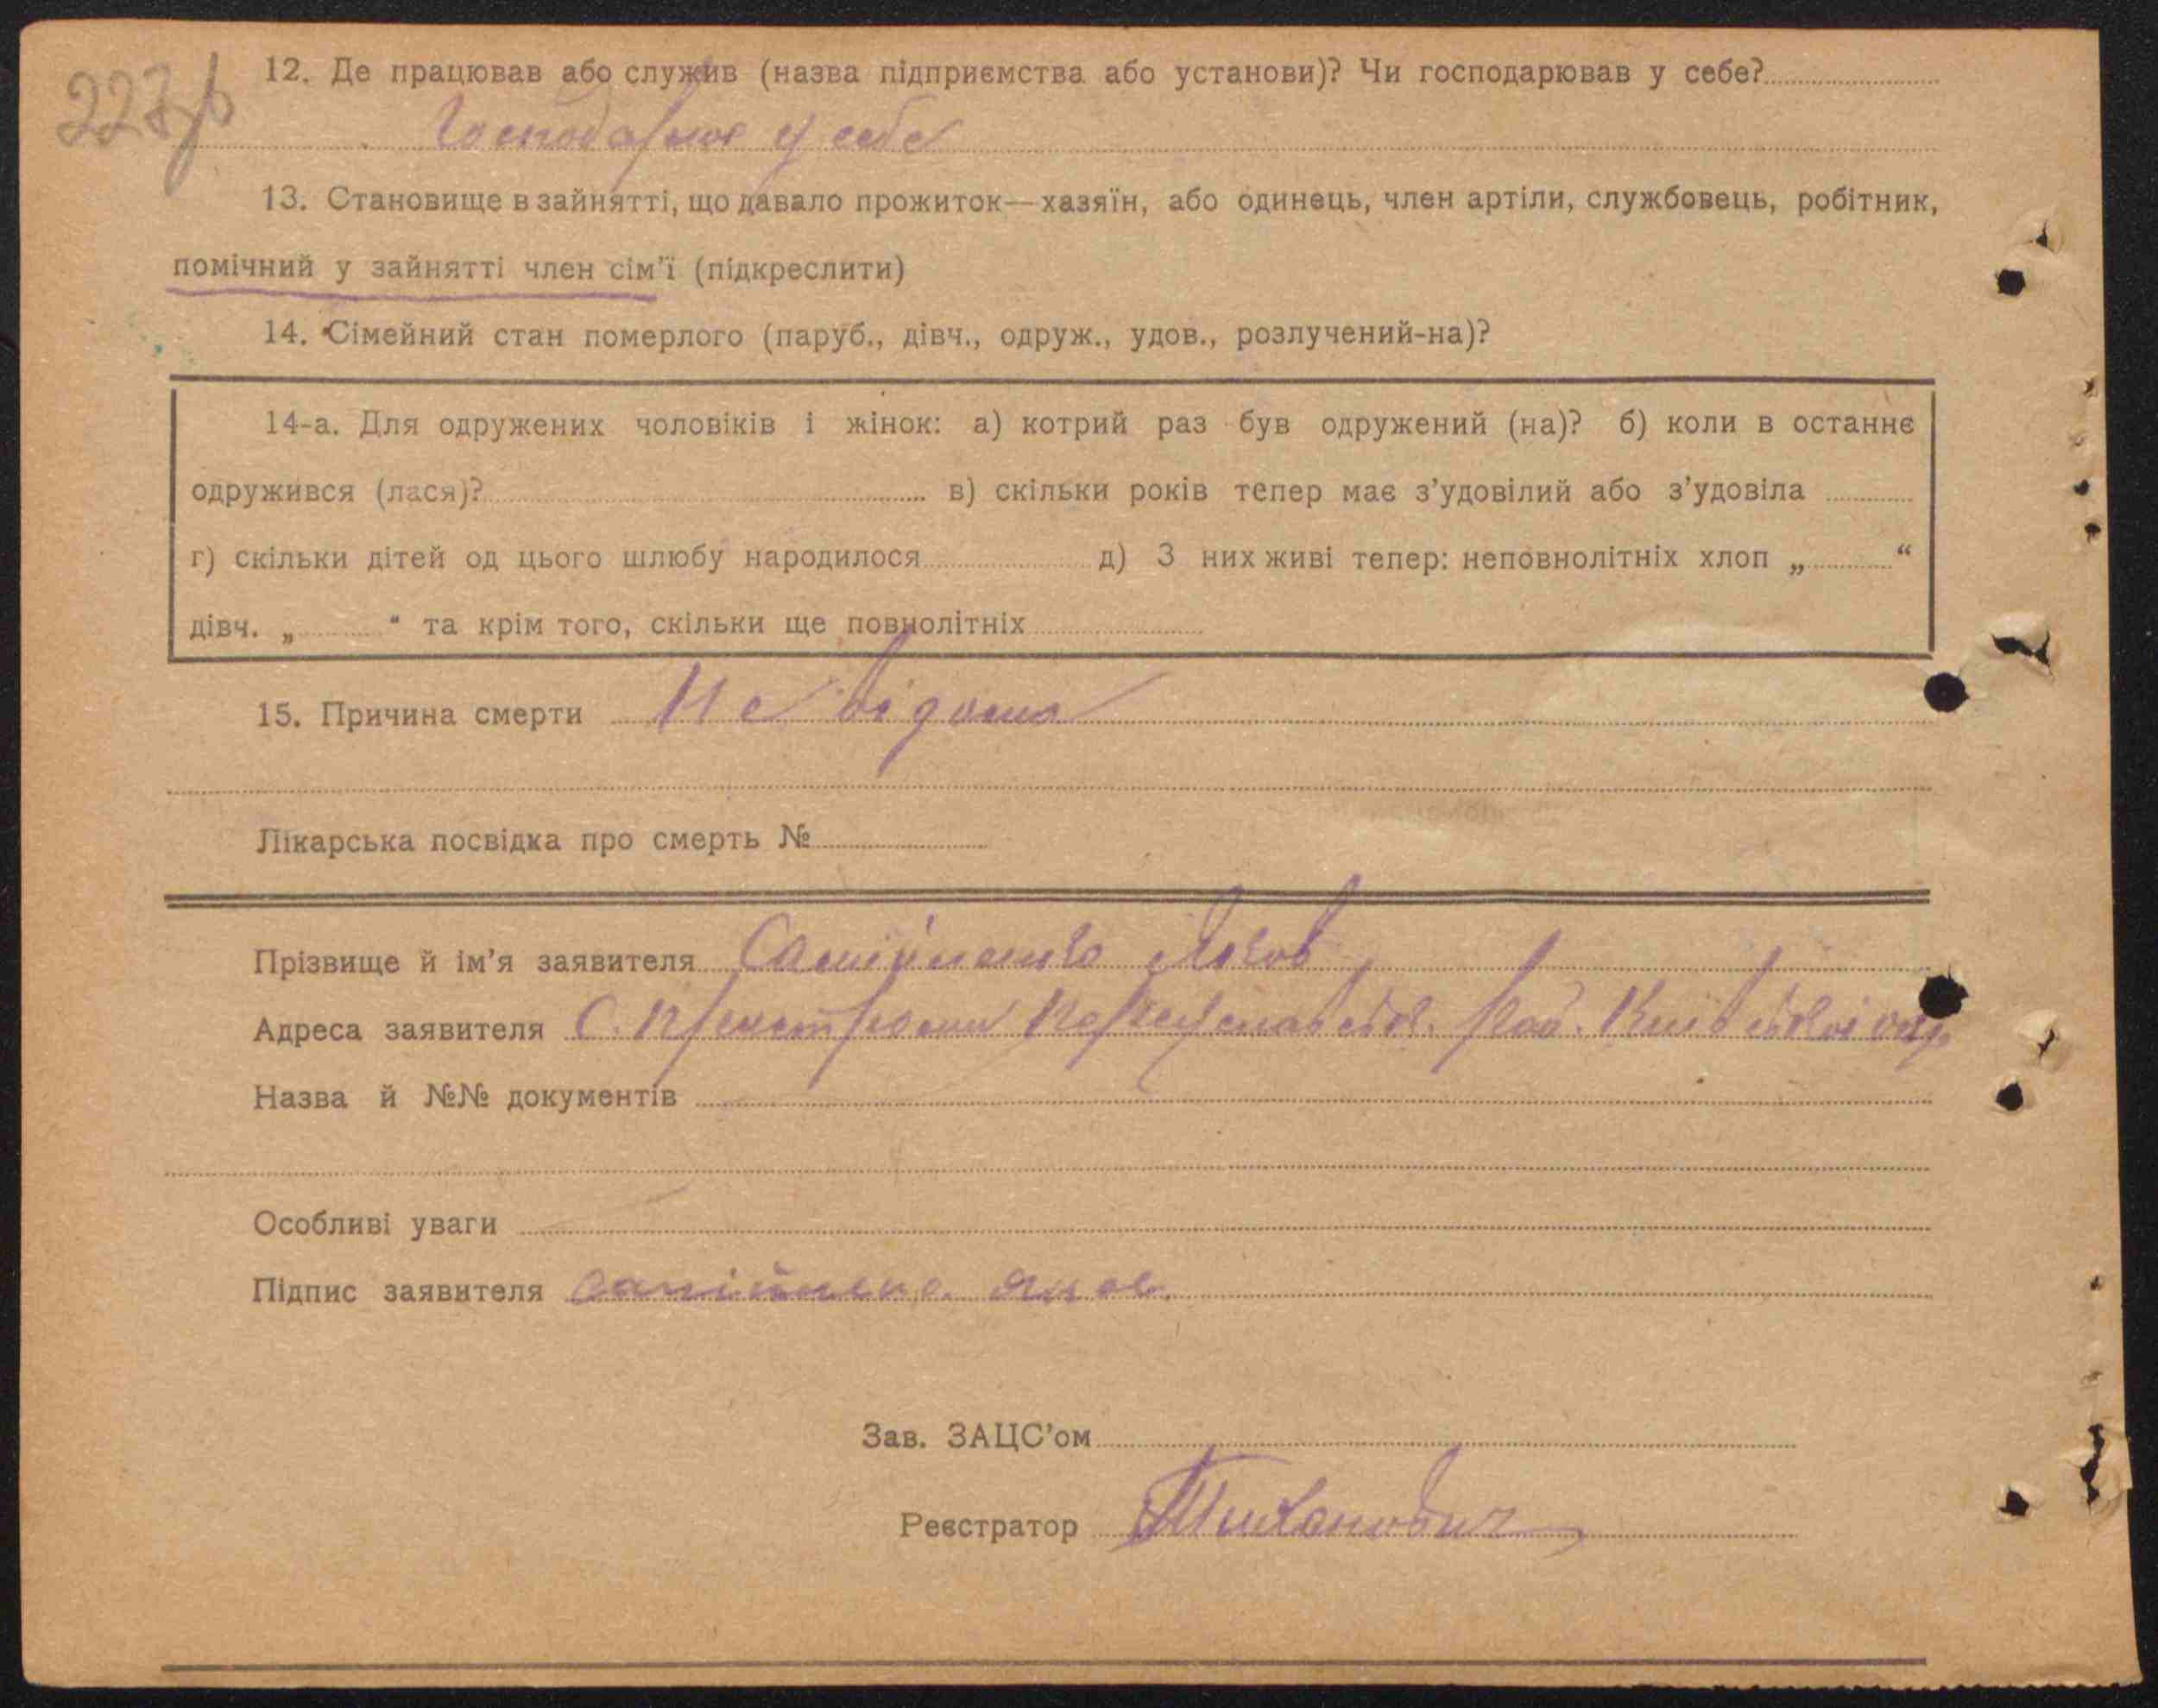 12. Де працював або служив (назва підприємства або установи)? Чи господарював у себе?
Господарював у себе
13. Становище в зайнятті, що давало прожиток—хазяїн, або одинець, член артіли, службовець, робітник,
помічний у зайнятті член сім'ї (підкреслити)
14. Сімейний стан померлого (паруб., дівч., одруж., удов., розлучений-на)?
14-а. Для одружених чоловіків і жінок: а) котрий раз був одружений (на)? б) коли в останнє
одружився (лася)? в) скільки років тепер має з'удовілий або з'удовіла
г) скільки дітей од цього шлюбу народилося д) З них живі тепер: неповнолітніх хлоп „ “
дівч. „ “ та крім того, скільки ще повнолітніх
15. Причина смерти Не відома
Лікарська посвідка про смерть №
Прізвище й ім'я заявителя Самійленко Яков
Адреса заявителя С. Переяславськ. рай. Київської окр.
Назва й №№ документів
Особливі уваги
Підпис заявителя Яков
Зав. ЗАЦС'ом
Реєстратор